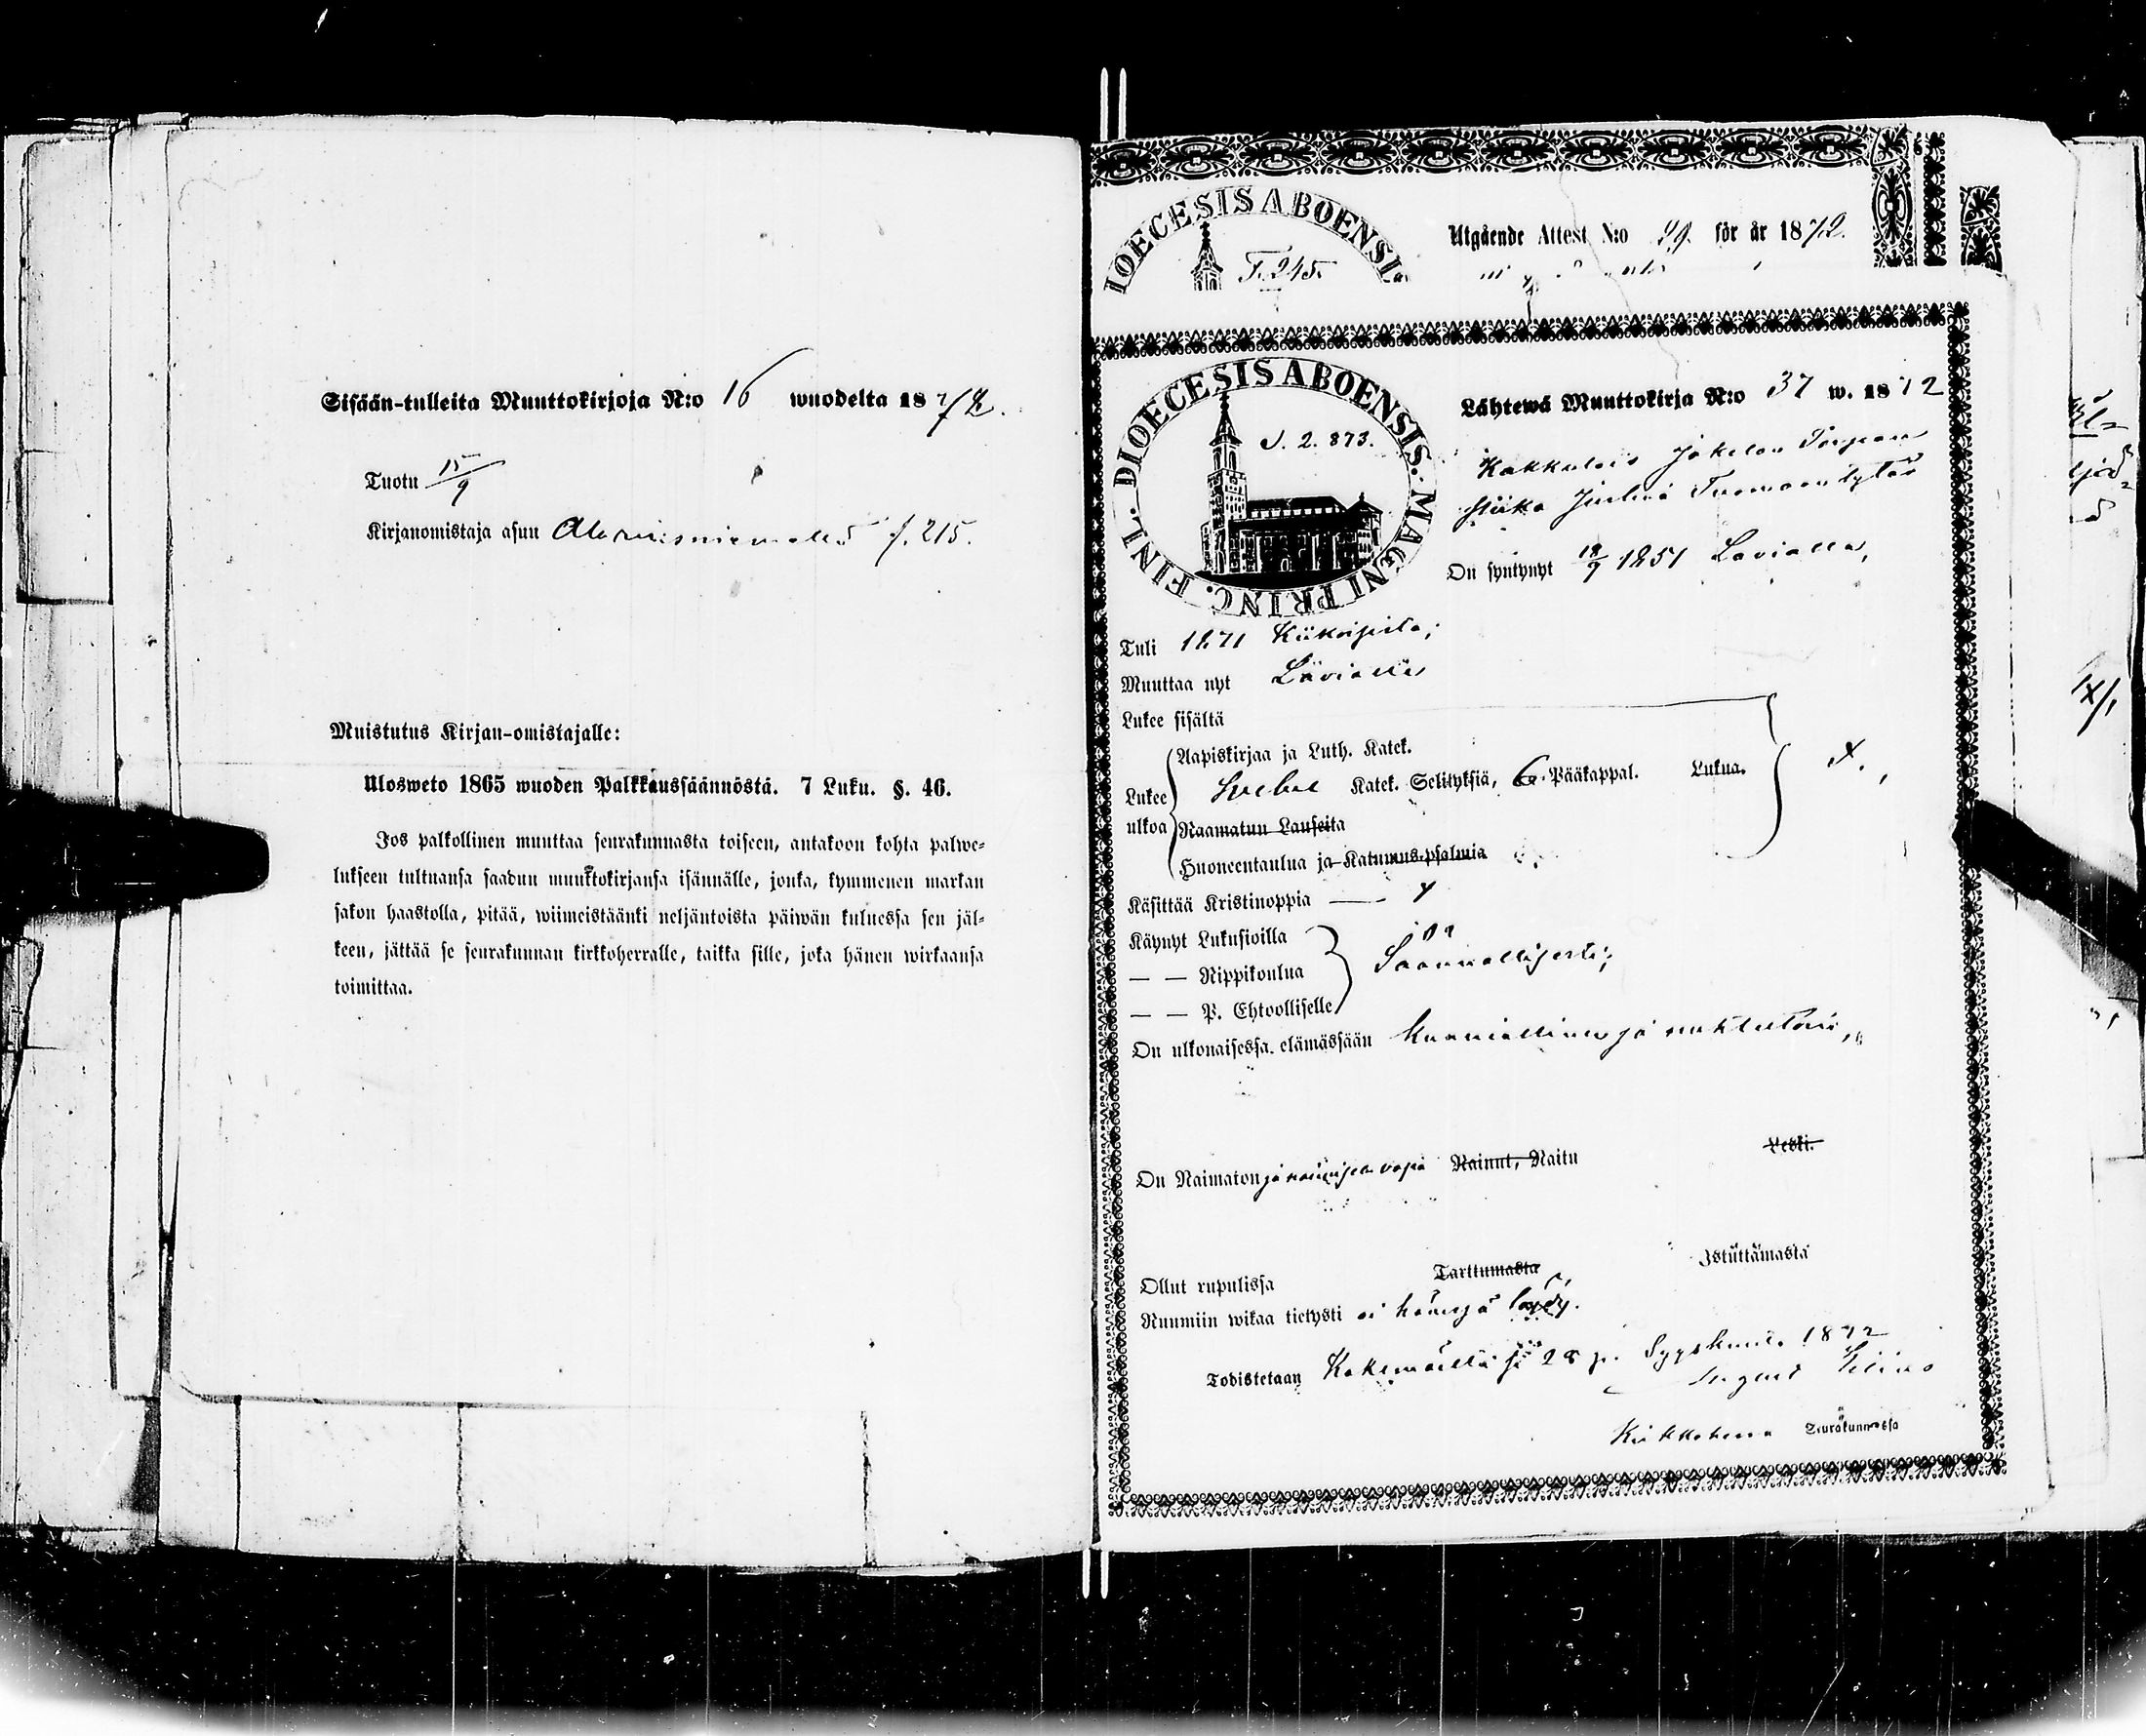 Sisään-tulleita Muuttokirjoja N:o 16 wuodelta 1872.
Tuotu 15/9
Kirjanomistaja asuu f. 215.
Muistutus Kirjan-omistajalle:
Ulosweto 1865 wuoden Palkkaussäännöstä. 7 Luku. §. 46.
Jos palkollinen muuttaa seurakunnasta toiseen, antakoon kohta palwe-
lukseen tultuansa saadun muuttokirjansa isännälle, jonka, kymmenen markan
sakon haastolla, pitää, wiimeistäänki neljäntoista päiwän kuluessa sen jäl-
keen, jättää se seurakunnan kirkkoherralle, taikka sille, joka hänen wirkaansa
toimittaa.
IOECESIS ABOENSI
F. 245.
Utgående Attest N:o 29. för år 1872.
DIOECESIS ABOENSIS. MAGNI PRINC. FINL.
S. 2. 873.
Lähtewä Muuttokirja N:o 37 w. 1872
Kakkulais Jokelan Torpan
Tuomaan tytär
On syntynyt 18/9 1851 Lavialla,
Tuli 1871 Kiikoisista;
Muuttaa nyt Lavialle
Lukee sisältä
Aapiskirjaa ja Luth. Katek.
Lukee Svebel Katek. Selityksiä, 6 Pääkappal. Lukua. x.
ulkoa Raamatun Lauseita
Huoneentaulua ja Katumus-psalmia
Käsittää Kristinoppia — x
Käynyt Lukusioilla
— — Rippikoulua Säännöllisesti;
— — P. Ehtoolliselle
On ulkonaisessa elämässään kunniallinen ja nuhteetoin,
On Naimaton ja naimisen vapa Nainut, Naitu Leski.
Ollut rupulissa Tarttumasta Istuttamasta
Ruumiin wikaa tietysti ei hänesjä löydy.
Todistetaan Kokemäellä 28 p. Syyskuuta 1872
August
Kirkkoherra Seurakunnassa